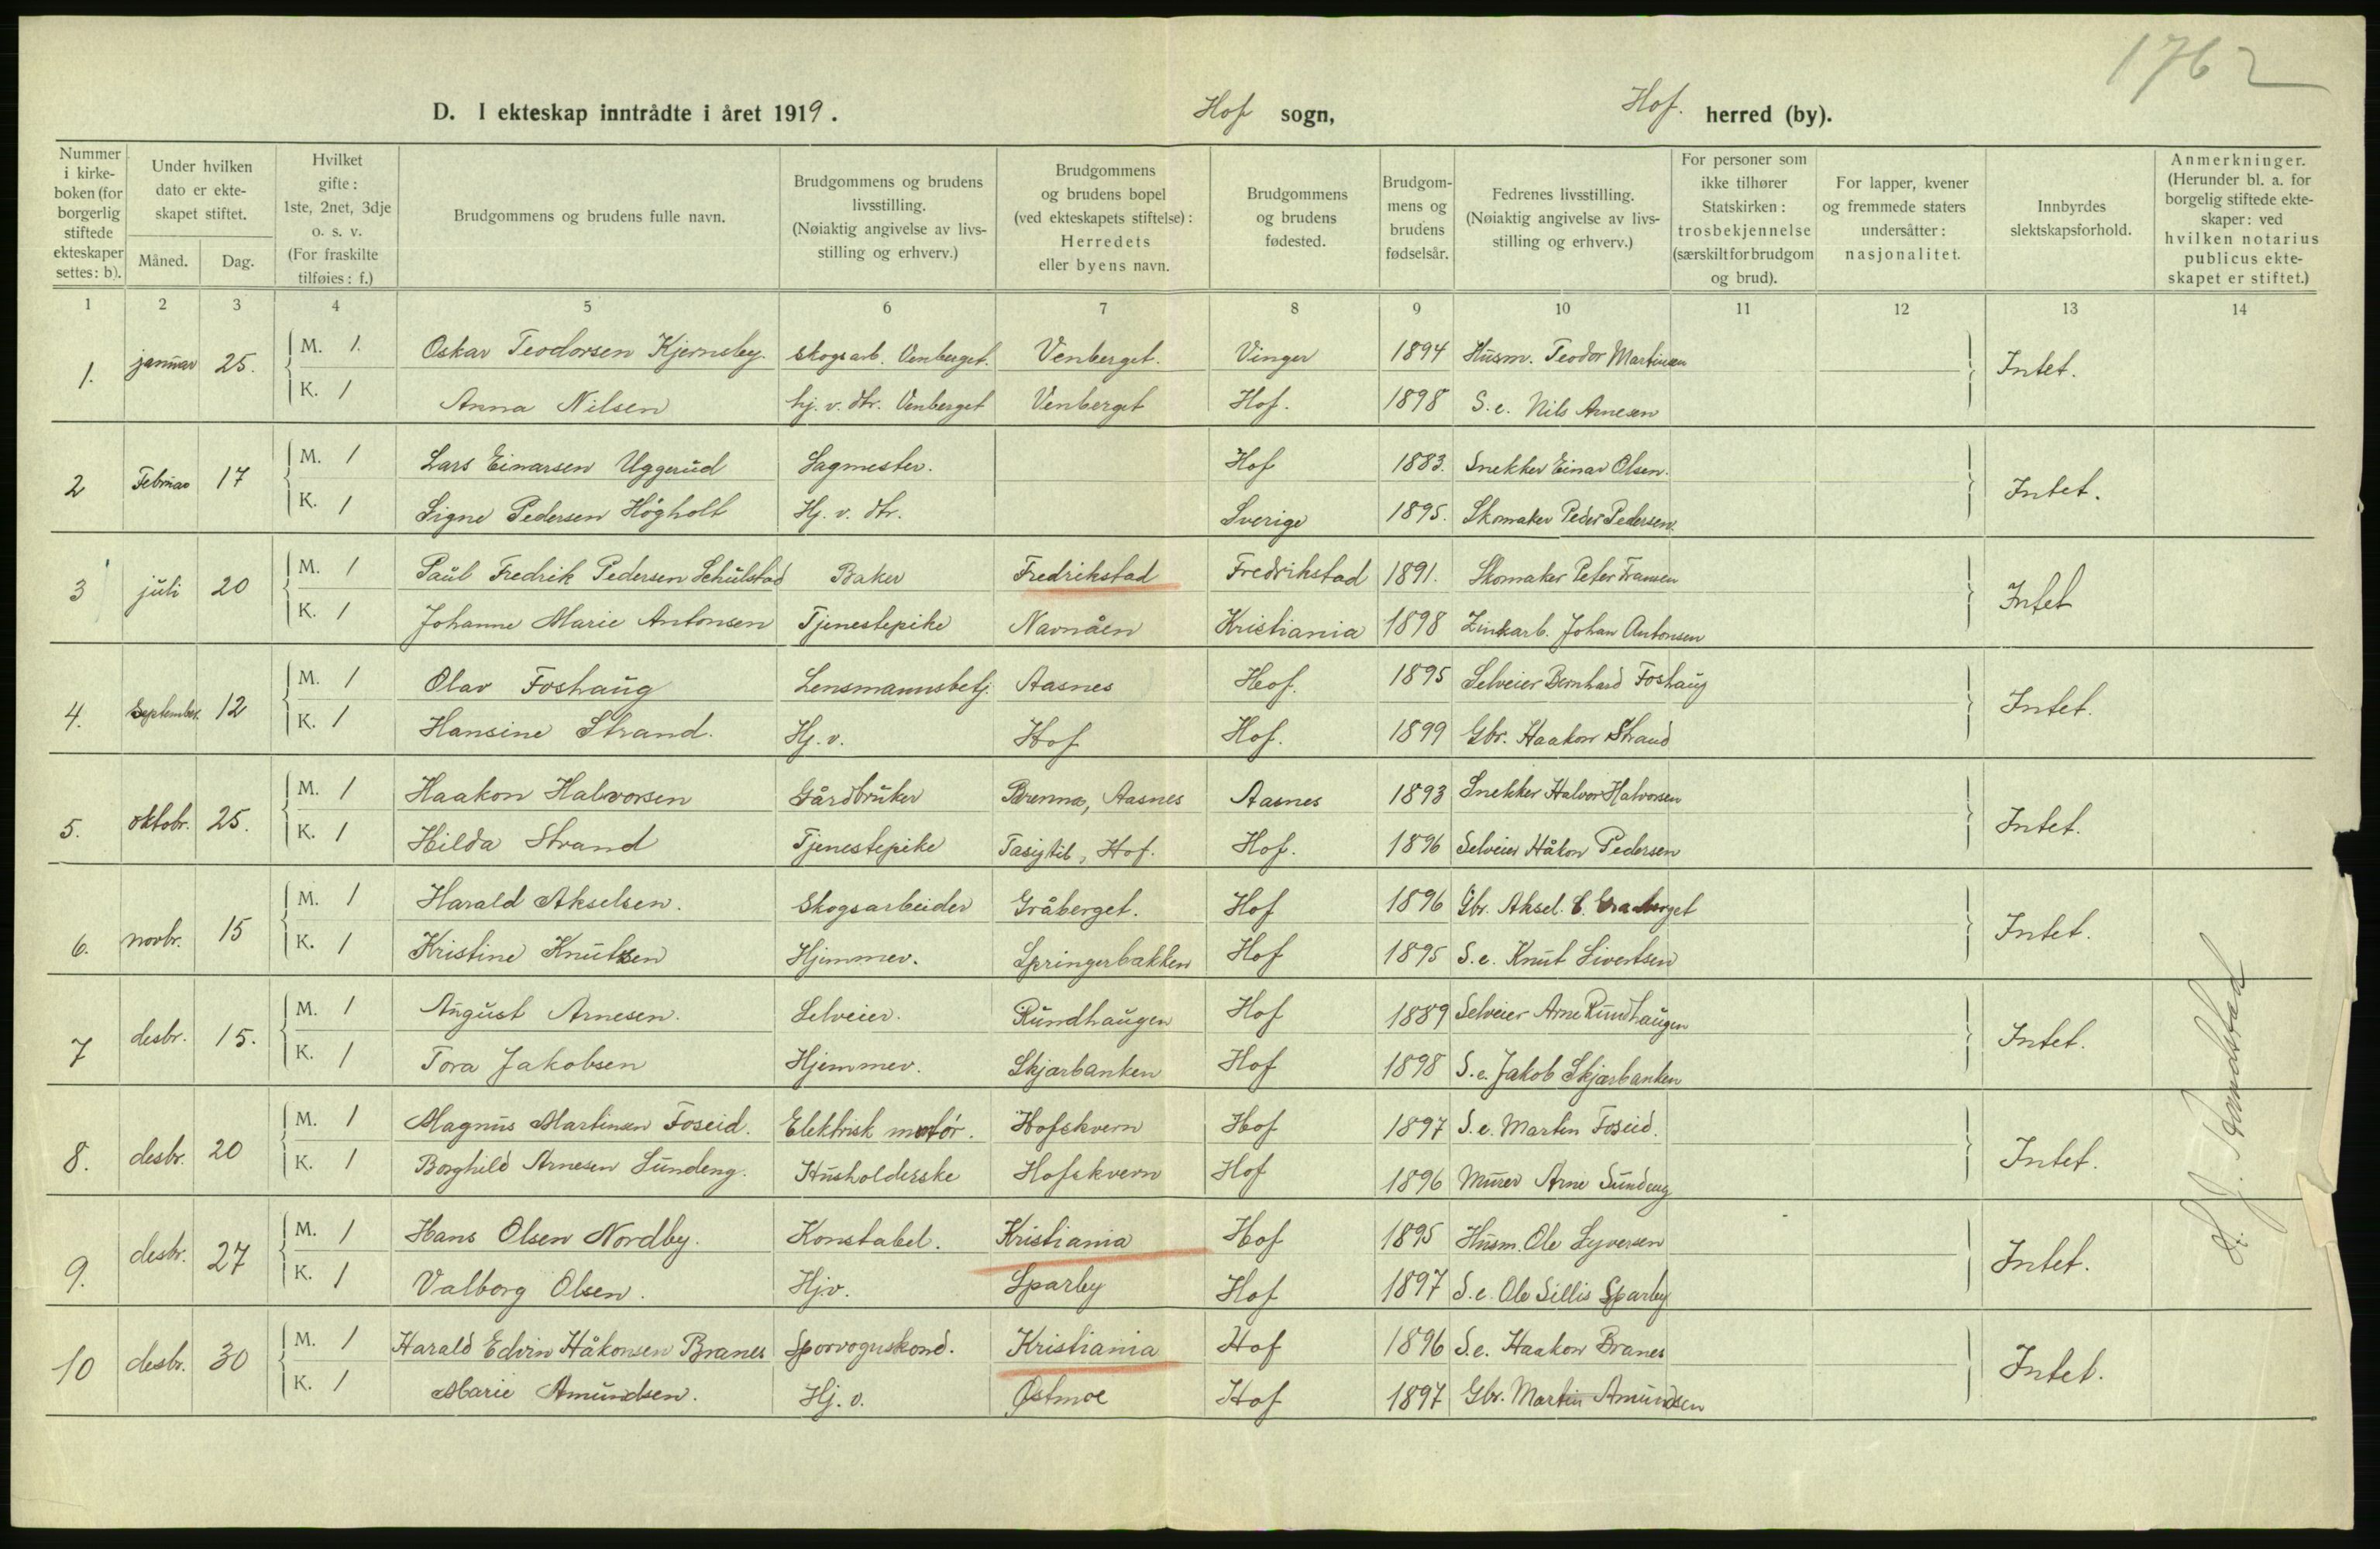 1762
D. I ekteskap inntrådte i året 1919. Hof sogn, Hof. herred (by).
Nummer i kirkeboken (for borgerlig stiftede ekteskaper settes: b).
Under hvilken dato er ekteskapet stiftet.
Måned. Dag.
Hvilket gifte: 1ste, 2net, 3dje o. s. v. (For fraskilte tilføies: f.)
Brudgommens og brudens fulle navn.
Brudgommens og brudens livsstilling. (Nøiaktig angivelse av livsstilling og erhverv.)
Brudgommens og brudens bopel (ved ekteskapets stiftelse): Herredets eller byens navn.
Brudgommens og brudens fødested.
Brudgommens og brudens fødselsår.
Fedrenes livsstilling. (Nøiaktig angivelse av livsstilling og erhverv.)
For personer som ikke tilhører Statskirken: trosbekjennelse (særskilt for brudgom og brud).
For lapper, kvener og fremmede staters undersåtter: nasjonalitet.
Innbyrdes slektskapsforhold.
Anmerkninger. (Herunder bl. a. for borgerlig stiftede ekteskaper: ved hvilken notarius publicus ekteskapet er stiftet.)
1 2 3 4 5 6 7 8 9 10 11 12 13 14
1. januar 25. M. 1. Oskar Teodorsen Kjernsby. Skogsarb. Venberget. Venberget. Vinger 1894 Husm. Teodor Martinsen Intet.
K. 1 Anna Nilsen hj. v. dtr. Venberget Venberget Hof. 1898 S. e. Nils Arnesen
2 Februar 17 M. 1 Lars Einarsen Uggerud Sagmester. Hof 1883. Snekker Einar Olsen. Intet.
K. 1 Signe Pedersen Högholt Hj. v. dtr. Sverige 1895. Skomaker Peder Pedersen.
3 juli 20 M. 1 Paul Fredrik Pedersen Schulstad Baker Fredrikstad Fredrikstad 1891. Skomaker Peter Fransen Intet
K. 1 Johanne Marie Antonsen Tjenestepike Navnåen Kristiania 1898 Zinkarb. Johan Antonsen
4. September. 12 M. 1 Olav Foshaug Lensmannsbetj. Aasnes Hof. 1895 Selveier Bernhard Foshaug Intet.
K. 1 Hansine Strand. Hj. v. Hof Hof. 1899 Gbr. Haakon Strand
5. oktobr. 25. M. 1 Haakon Halvorsen Gårdbruker Brenna, Aasnes Aasnes 1893 Snekker Halvor Halvorsen Intet.
K. 1 Hilda Strand Tjenestepike Hof. Hof. 1896 Selveier Håkon Pedersen
6. novbr. 15 M. 1 Harald Akselsen. Skogsarbeider Gråberget. Hof 1896 Gbr. Aksel. E. Graaberget Intet.
K. 1 Kristine Knutsen Hjemmev. Springerbakken Hof 1895 S. e. Knut Sivertsen
7 desbr. 15. M. 1 August Arnesen. Selveier. Rundhaugen Hof 1889 Selveier Arne Rundhaugen Intet.
K. 1 Tora Jakobsen Hjemmev. Skjærbanken Hof 1898 S. e. Jakob Skjærbanken
8. desbr. 20 M. 1 Magnus Martinsen Foseid. Elektrisk motör. Hofskvern Hof 1897 S. e. Martin Foseid. Intet.
K. 1 Borghild Arnesen Sundeng. Husholderske Hofskvern Hof 1896 Murer Arne Sundeng
9. desbr. 27 M. 1 Hans Olsen Nordby. Konstabel. Kristiania Hof 1895 Husm. Ole Syversen Intet.
K. 1 Valborg Olsen. Hjv. Sparby Hof 1897 S. e. Ole Sillis Sparby
10 desbr. 30 M. 1 Harald Edvin Håkonsen Branes Sporvognskond. Kristiania Hof 1896 S. e. Haakon Branes Intet.
K. 1 Marie Amundsen. Hj. v. Østmoe Hof 1897 Gbr. Martin Amundsen